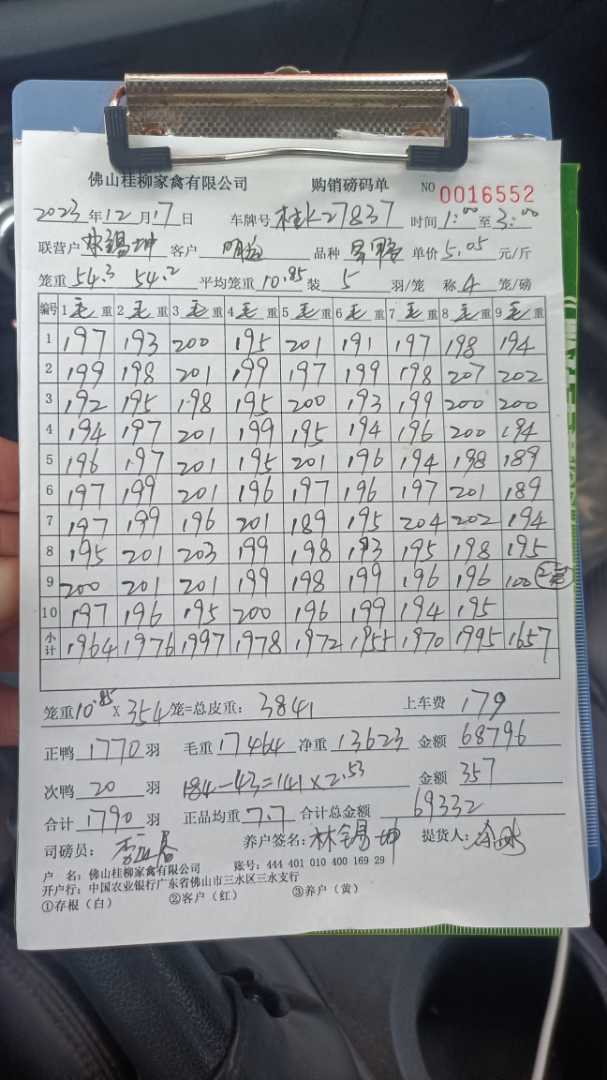 佛山桂柳家禽有限公司 购销磅码单 NO 0016552
2023年12月17日 车牌号 桂K27837 时间 1:00 至 3:00
联营户 林锡坤 客户 品种 单价 5.05 元/斤
笼重 54.3 54.2 平均笼重 10.85 装 5 羽/笼 称 4 笼/磅
编号 1 毛 重 2 毛 重 3 毛 重 4 毛 重 5 毛 重 6 毛 重 7 毛 重 8 毛 重 9 毛 重
1 197 193 200 195 201 191 197 198 194
2 199 198 201 199 197 199 198 207 202
3 192 195 198 195 200 193 199 200 200
4 194 197 201 199 195 194 196 200 194
5 196 197 201 195 201 196 194 198 189
6 197 199 201 196 197 196 197 201 189
7 197 199 196 201 189 195 204 202 194
8 195 201 203 199 198 193 195 198 195
9 200 201 201 199 198 199 196 196 100 2笼
10 197 196 195 200 196 199 194 195
小计 1964 1976 1997 1978 1972 1955 1970 1995 1657
笼重 10.85 X 354 笼=总皮重: 3841 上车费 179
正鸭 1770 羽 毛重 17464 净重 13623 金额 68796
次鸭 20 羽 184-43=141×2.53 金额 357
合计 1790 羽 正品均重 7.7 合计总金额 69332
司磅员: 养户签名: 林锡坤 提货人:
户 名: 佛山桂柳家禽有限公司 账号: 444 401 010 400 169 29
开户行: 中国农业银行广东省佛山市三水区三水支行
①存根（白） ②客户（红） ③养户（黄）